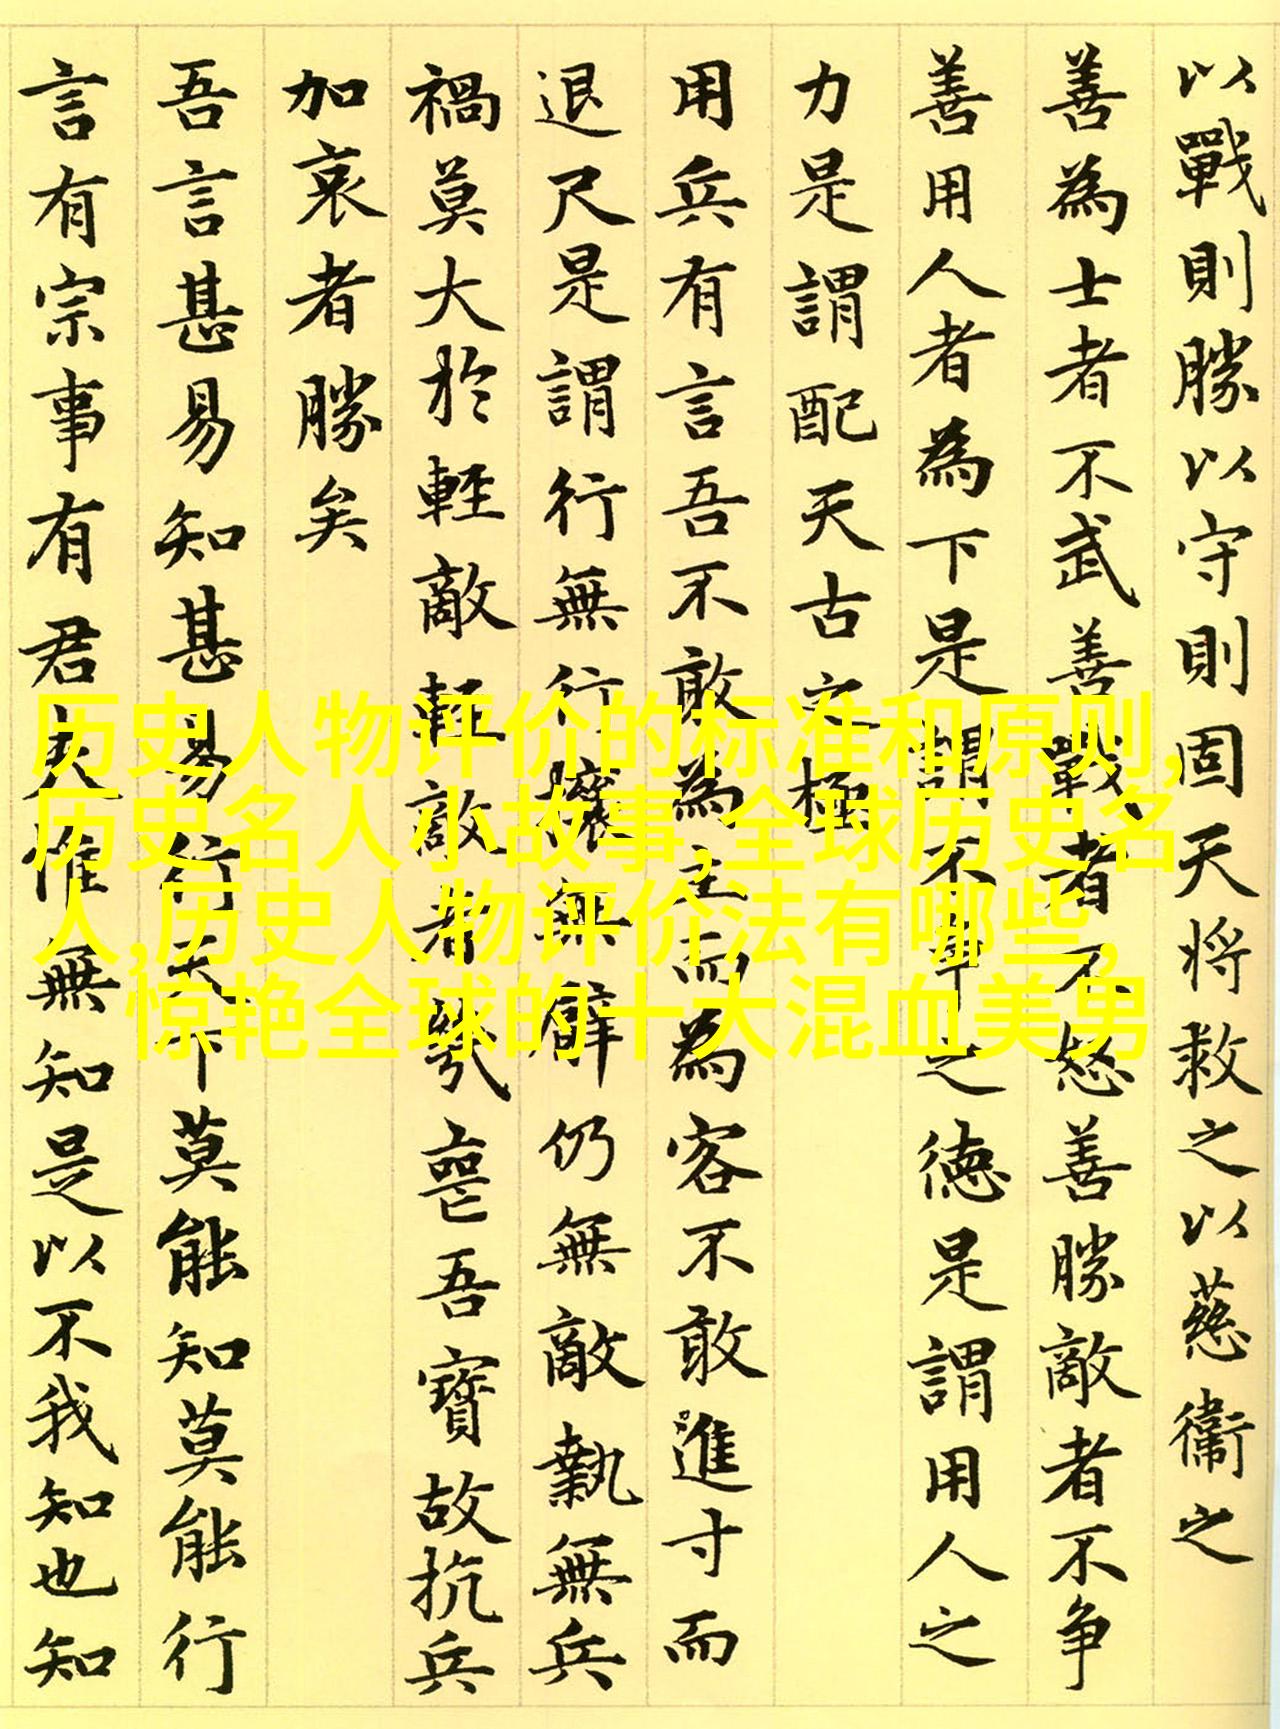 以戰則勝以守則固天将救之以慈衞之
善為士者不武善戰者不怒善勝敵者不争
善用人者為下是謂不争之德是謂用人之
力是謂配天古之極
用兵有言吾不敢為主而為客不敢進寸而
退尺是謂行無行攘無臂仍無敵執無兵
禍莫大於輕敵輕敵者幾喪吾寶故抗兵
加哀者勝矣
吾言甚易知甚易行天下莫能知莫能行
言有宗事有君夫惟無知是以不我知也知
历史人物评价的标准和原则,
历史名人小故事,全球历史名
人,历史人物评价法有哪些,
惊艳全球的十大混血美男